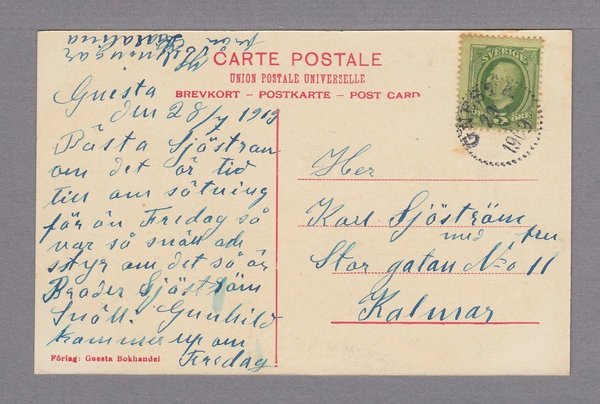 CARTE POSTALE
UNION POSTALE UNIVERSELLE
BREVKORT - POSTKARTE - POST CARD
SVERIGE
5
Gnesta
den 28/7 1909
Bästa Sjöström
om det är tid
till om såtning
för än Fredag så
var så snäll och
styr om det så är
Broder Sjöström
Snäll. Gunhild
kommer up om
Fredag
Her
Karl Sjöström
med fru
Stor gatan No 11
Kalmar
Förlag: Gnesta Bokhandel